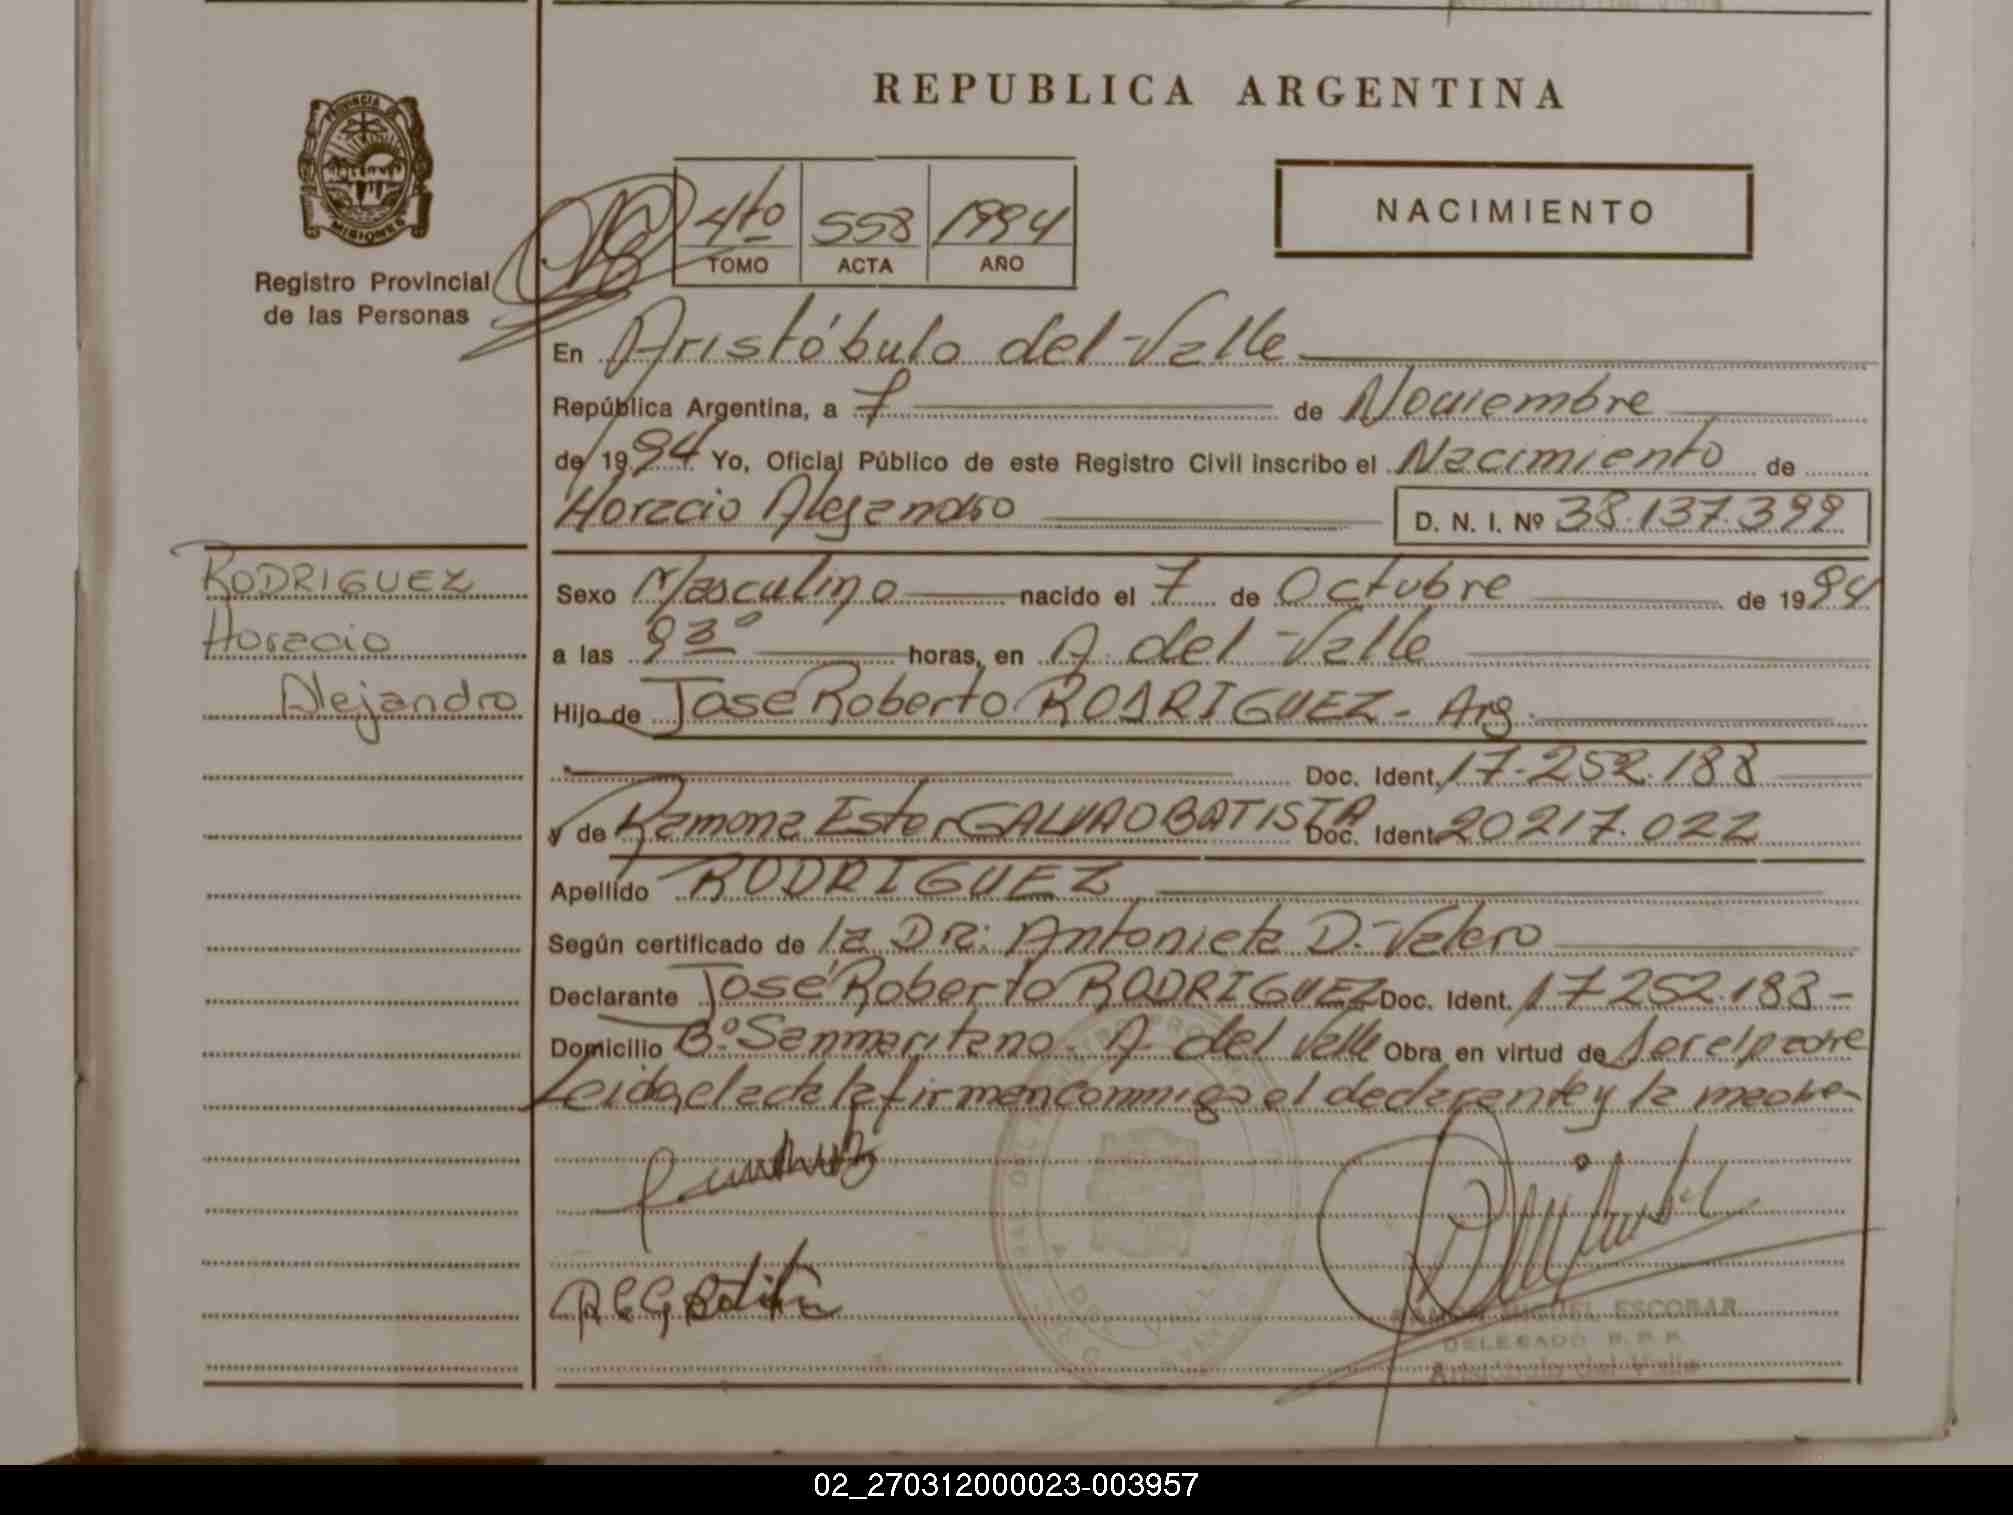 REPUBLICA ARGENTINA
PROVINCIA DE
MISIONES
Registro Provincial
de las Personas
4to 558 1994
TOMO ACTA AÑO
NACIMIENTO
En Aristóbulo del Valle
República Argentina, a 7 de Noviembre
de 1994 Yo, Oficial Público de este Registro Civil inscribo el Nacimiento de
Horacio Alejandro D. N. I. Nº 38.137.399
RODRIGUEZ
Horacio
Alejandro
Sexo Masculino nacido el 7 de Octubre de 1994
a las 9 30 horas, en A. del Valle
Hijo de José Roberto RODRIGUEZ - Arg.
Doc. Ident. 17.252.183
y de Ramona Ester GALVAO BATISTA Doc. Ident. 20217.022
Apellido RODRIGUEZ
Según certificado de la DRa: Antonieta D. Valero
Declarante José Roberto RODRIGUEZ Doc. Ident. 17252.183 -
Domicilio Bº Sanmaritano - A del Valle Obra en virtud de ser el padre
Leida el acta la firman conmigo el declarante y la madre -
R E G Batista
MIGUEL ESCOBAR
DELEGADO R. P. P.
Aristóbulo del Valle
02_270312000023-003957